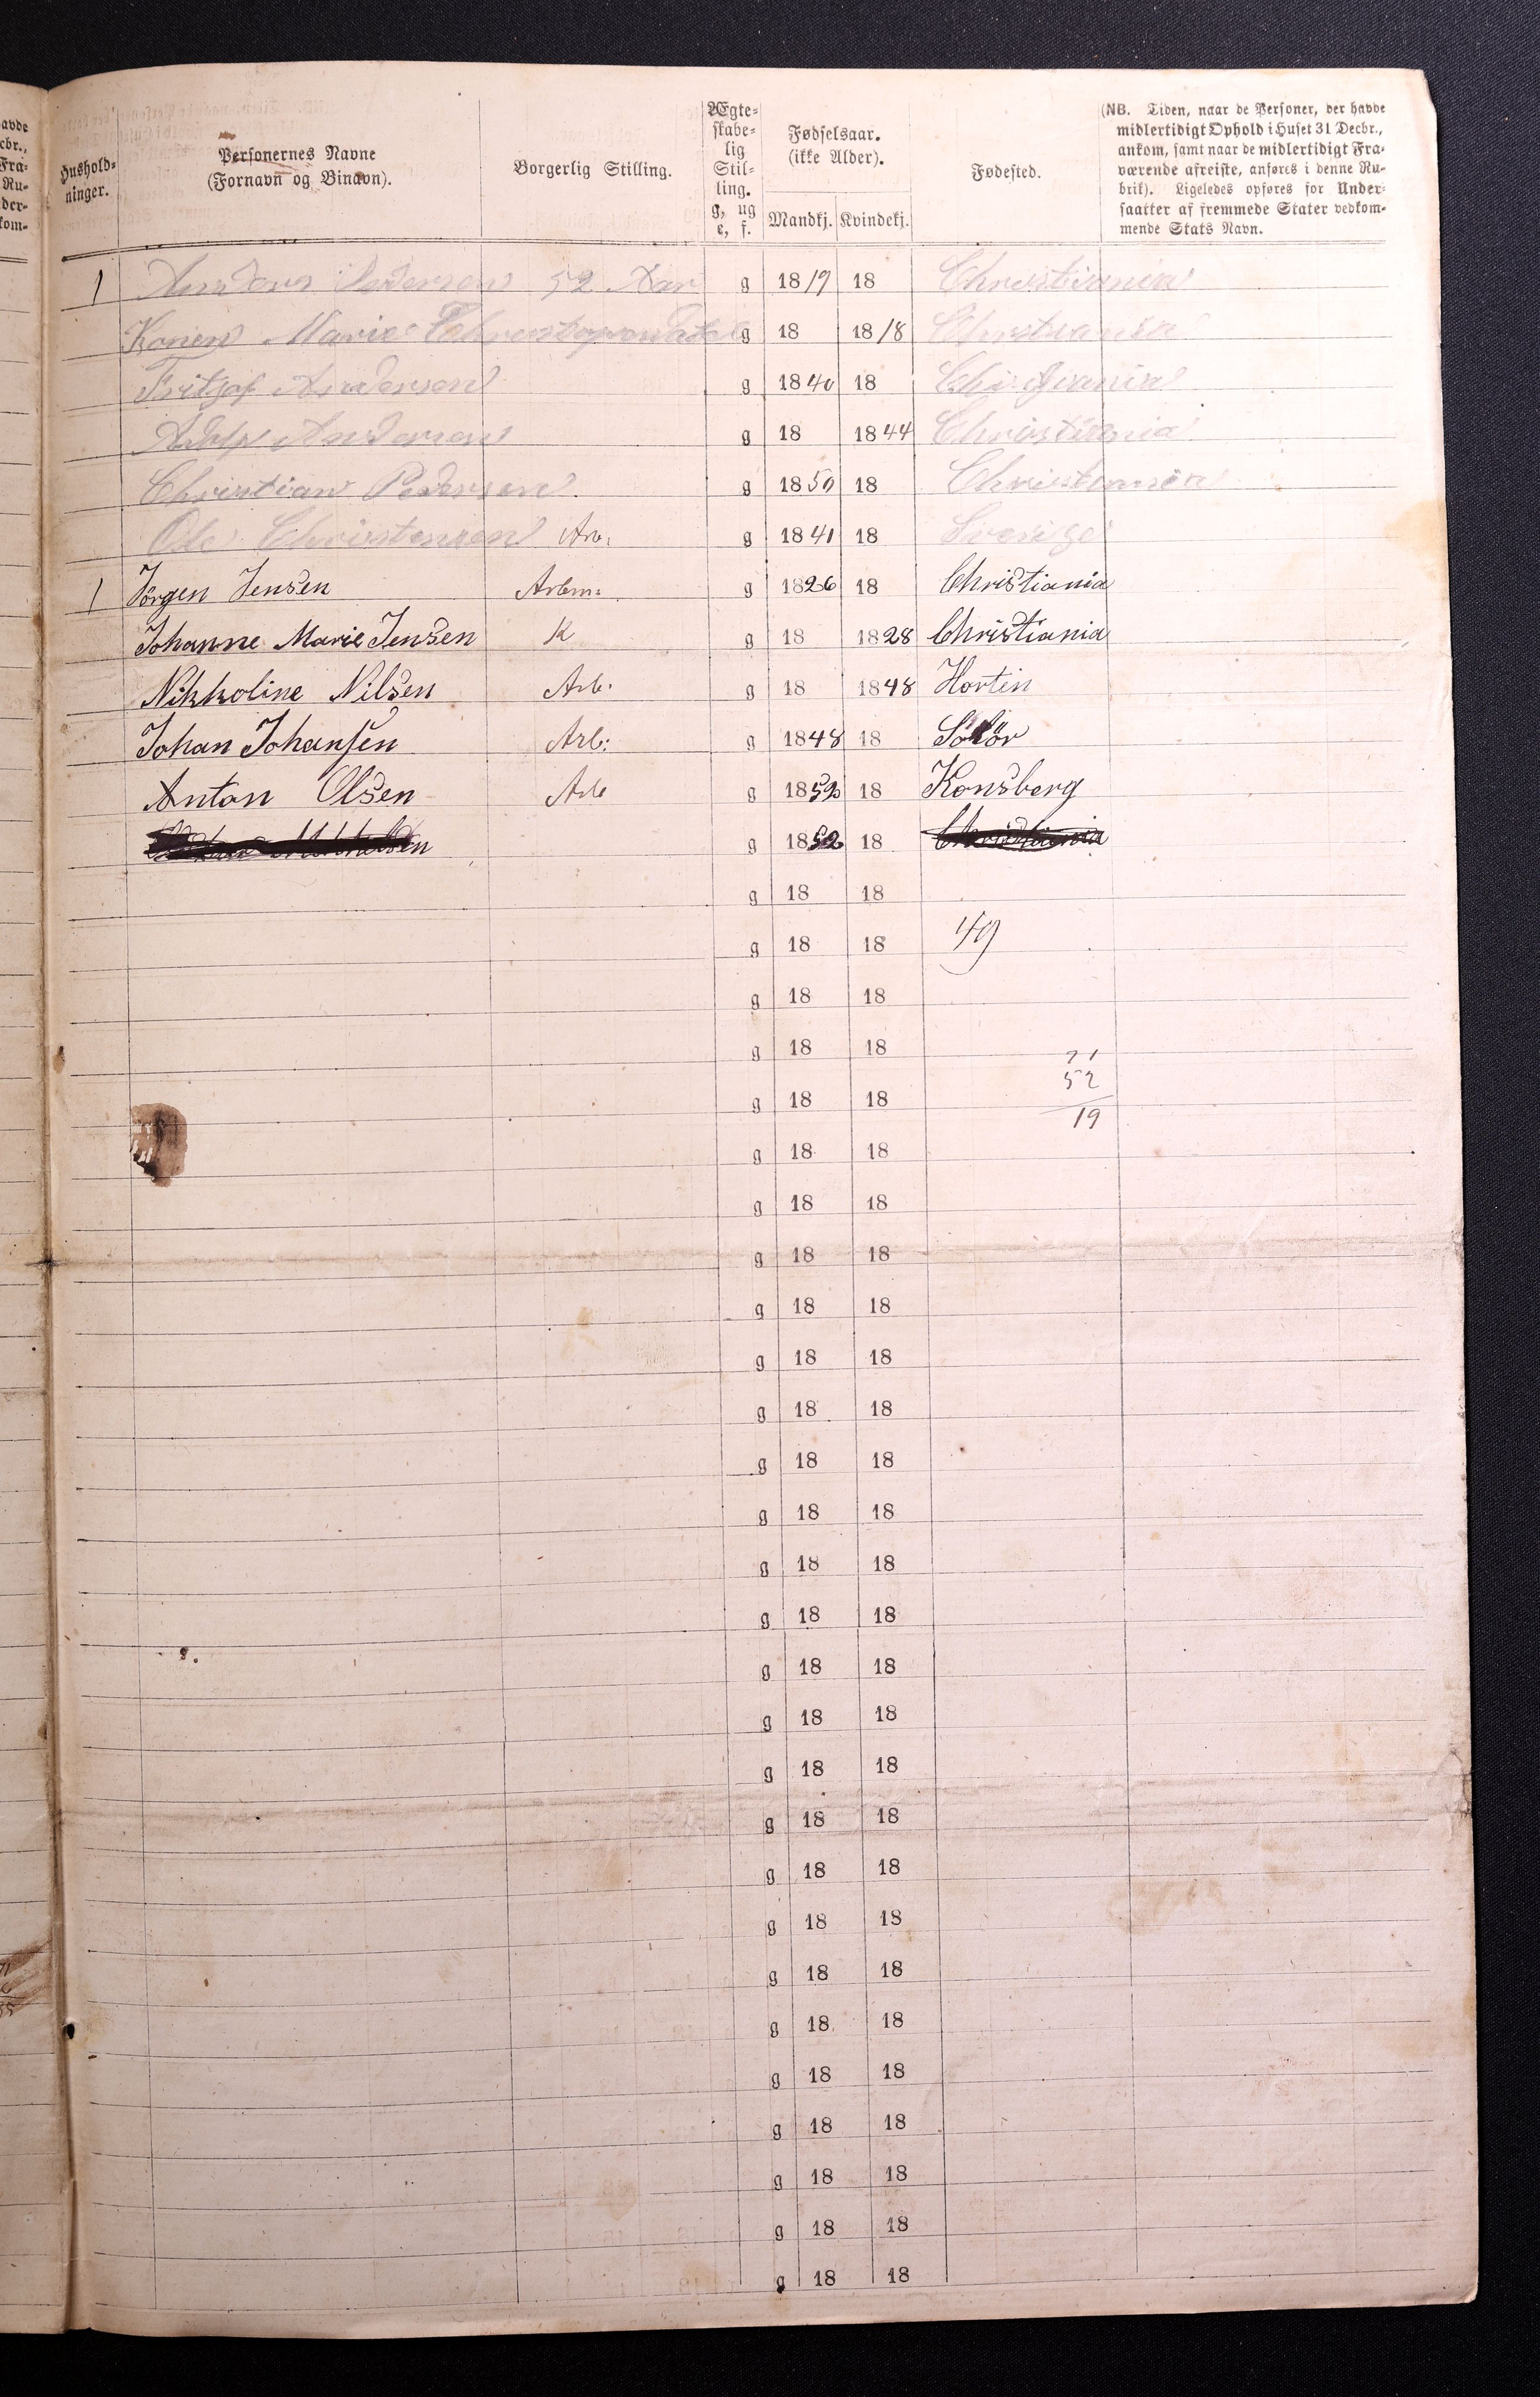 Hushold-
ninger.
Personernes Navne
(Fornavn og Binavn).
Borgerlig Stilling.
Ægte-
skabe-
lig
Stil-
ling.
g, ug
e, f.
Fødselsaar.
(ikke Alder).
Mandkj. Kvindekj.
Fødested.
(NB. Tiden, naar de Personer, der havde
midlertidigt Ophold i Huset 31 Decbr.,
ankom, samt naar de midlertidigt Fra-
værende afreiste, anføres i denne Ru-
brik). Ligeledes opføres for Under-
saatter af fremmede Stater vedkom-
mende Stats Navn.
1 Anders Pedersen 52 Aar g 1819 18 Christiania
Konen Marie g 18 1818 Christiania
Fritjof Andersen g 1840 18 Christiania
Andersen g 18 1844 Christiania
Christian Pedersen g 1850 18 Christiania
Ole Christensen Arb. g 1841 18 Sverige
1 Jörgen Jensen Arbm: g 1826 18 Christiania
Johanne Marie Jensen K g 18 1828 Christiania
Nikkoline Nilsen Arb. g 18 1848 Hortin
Johan Johansen Arb: g 1848 18 Solör
Anton Olsen Arb g 1852 18 Konsberg
g 1852 18 Christiania
g 18 18
g 18 18 49
g 18 18
g 18 18 71
g 18 18 52
19
g 18 18
g 18 18
g 18 18
g 18 18
g 18 18
g 18 18
g 18 18
g 18 18
g 18 18
g 18 18
g 18 18
g 18 18
g 18 18
g 18 18
g 18 18
g 18 18
g 18 18
g 18 18
g 18 18
g 18 18
g 18 18
g 18 18
g 18 18